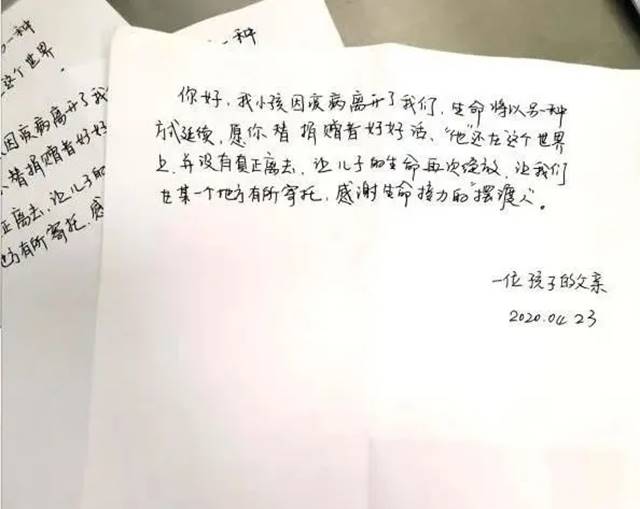 另一种
这个世界
因疾病离开了我
替捐赠者好好
正离去,让儿子的
方有所寄托,感
一种
你好,我小孩因疾病离开了我们,生命将以另一种
方式延续,愿你替捐赠者好好活、“他”还在这个世界
上,并没有真正离去,让儿子的生命再次绽放,让我们
在某一个地方有所寄托,感谢生命接力的“摆渡人”。
一位孩子的父亲
2020.04.23